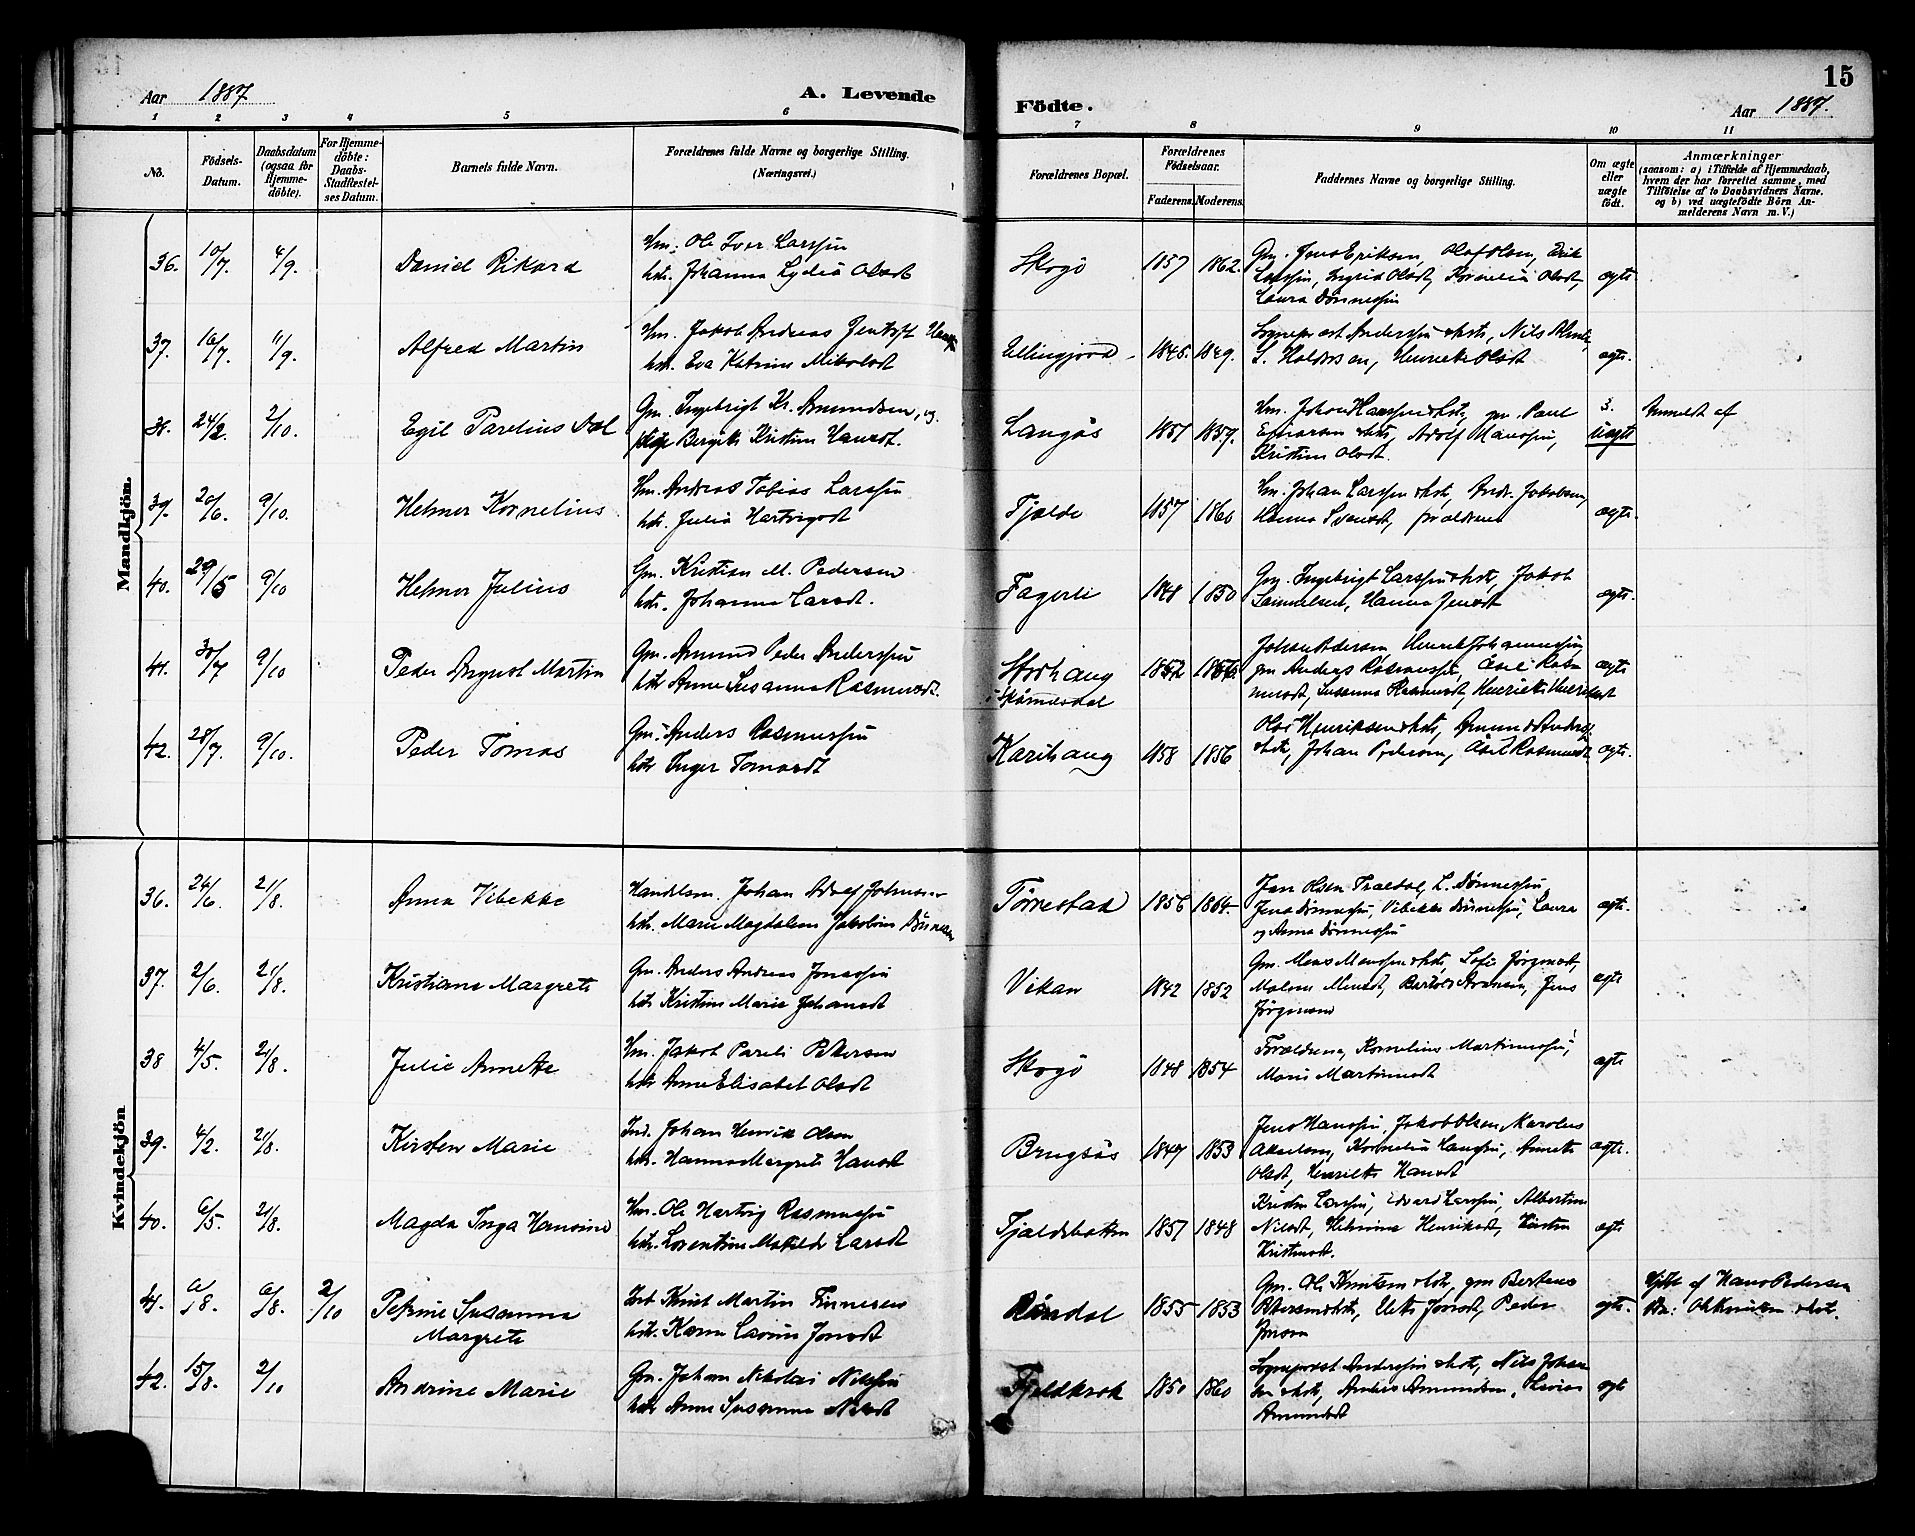 Aar 1887
A. Levende
Födte.
Aar 1887.
15
1 2 3 4 5 6 7 8 9 10 11
No.
Födsels-
Datum.
Daabsdatum
(ogsaa for
Hjemme-
döbte).
For Hjemme-
döbte:
Daabs-
Stadfæstel-
ses Datum.
Barnets fulde Navn.
Forældrenes fulde Navne og borgerlige Stilling.
(Næringsvei.)
Forældrenes Bopæl.
Forældrenes
Födselsaar.
Faderens. Moderens.
Faddernes Navne og borgerlige Stilling.
Om ægte
eller
uægte
födt.
Anmærkninger
(saasom: a) i Tilfælde af Hjemmedaab,
hvem der har forrettet samme, med
Tilföielse af to Daabsvidners Navne,
og b) ved uægtefödte Börn An-
melderens Navn m. V.)
Mandkjön.
36. 10/7. 4/9. Daniel Rikard
Hm. Ole Iver Larssen
hstr. Johanna Lydia Olsdt
Skogö 1857 1862.
Gm. Jens Eriksen, Olaf Olsen, Erik
Larssen, Ingrid Olsdt, Kornelia Olsdt,
Laura Dönnessen
ægte
37. 16/7. 11/9. Alfred Martin
Hm. Jakob Andreas Jentoft
hstr. Eva Katrine Mikalsdt
Ellingjord 1846. 1849.
Sogneprest Anderssen & hstr, Nils
Henrikke Olsdt
ægte.
38. 24/2. 2/10. Egil Parelius Dal
Gm. Ingebrigt Kr. Amundsen, og
pige Bergitte Kristine Hansdt.
Langås 1857 1859.
Hm. Johan Hanssen & hstr, gm. Paul
Adolf Manssen,
Kristine Olsdt.
3.
uægte
Anmeldt af
39. 20/6. 9/10. Helmer Kornelius
Hm. Andreas Tobias Larssen
hstr. Julia Hartvigsdt
Fjelde 1857 1860
Hm. Johan Larssen & hstr, Andr. Jakobsen,
Hanna Svensdt, forældrene
ægte.
40. 29/5 9/10 Helmer Julius
Gm. Kristian M. Pedersen
hstr. Johanna Larsdt.
Fagerli 1848 1850
Gm. Ingebrigt Larssen & hstr, Jakob
Samuelsen, Hanna Jensdt
ægte.
41. 30/7 9/10 Peder August Martin
Gm. Amund Peder Anderssen
hstr Anne Susanna Rasmusdt.
Storhaug
i Skömesdal 1852 1856
Johan Pedersen, Henrik Johannessen
gm Anders Rasmussen, Åsel Ras
musdt, Susanna Rasmusdt, Henrikke
ægte
42. 28/7. 9/10. Peder Tomas
Gm. Anders Rasmussen
hstr Inger Tomasdt
Karihaug 1858 1856
Olai Henriksen & hstr, Amund Anders.
& hstr, Johan Pedersen, Åsel Rasmusdt.
ægte.
Kvindekjön
36. 24/6. 21/8. Anna Vibekke
Handlem. Johan Adolf Johnsen
hstr. Marie Magdalena Jakobine Dönnessen
Törrestad 1856 1864.
Jens Olsen Traldal, L. Dönnessen
Jens Dönnessen, Vibekke Dönnessen, Laura
og Anna Dönnessen
ægte.
37. 2/6. 21/8. Kristiane Margrete
Gm. Anders Andreas Jonassen
hstr Kristine Marie Johansdt
Vikan 1842 1852
Gm. Mons Monssen & hstr, Sofie Jörgensdt,
Jens
Jörgensen
ægte
38 4/5. 21/8. Julie Annette
Hm. Jakob Pareli Petersen
hstr Anne Elisabet Olsdt
Skogö 1848 1854
Forældrene, Kornelius Martinussen,
Maris Martinusdt
ægte
39. 4/2. 21/8. Kirsten Marie
Ind. Johan Henrik Olsen
hstr. Hanna Margrete Hansdt
Brugsås 1847 1853
Jens Hanssen, Jakob Olsen, Karolus
Akselsen, Kornelia Hanssen, Annette
Olsdt, Henrikke Hansdt
ægte.
40. 6/5. 21/8. Magda Inga Hansine
Hm. Ole Hartvig Rasmussen
hstr. Lorentine Matilde Larsdt
Fjeldsbotten 1857 1848
Kristen Larssen, Edvard Larssen, Albertine
Nilsdt, Helmine Henriksdt, Kirsten
Kristensdt.
ægte
41. 6/8. 6/8. 2/10 Petrine Susanna
Margrete
Knut Martin Finnesen
hstr. Karen Lavine Jonsdt
Röndal 1855 1853
Gm. Ole Knutsen & hstr, gm Bertens
Petersen & hstr, Jonsdt, Peder
Jonsen
ægte.
Hjdbt af Hans Pedersen
Vn: Ole Knutsen & hst.
42. 15/8. 2/10 Andrine Marie
Gm. Johan Nikolai Nilssen
hstr Anne Susanna Nilsdt
Fjeldkrok 1850 1860
Sogneprest Anderssen & hst, Nils Johan
sen & hstr, Anders Amundsen, Lovise
Amundsdt
ægte